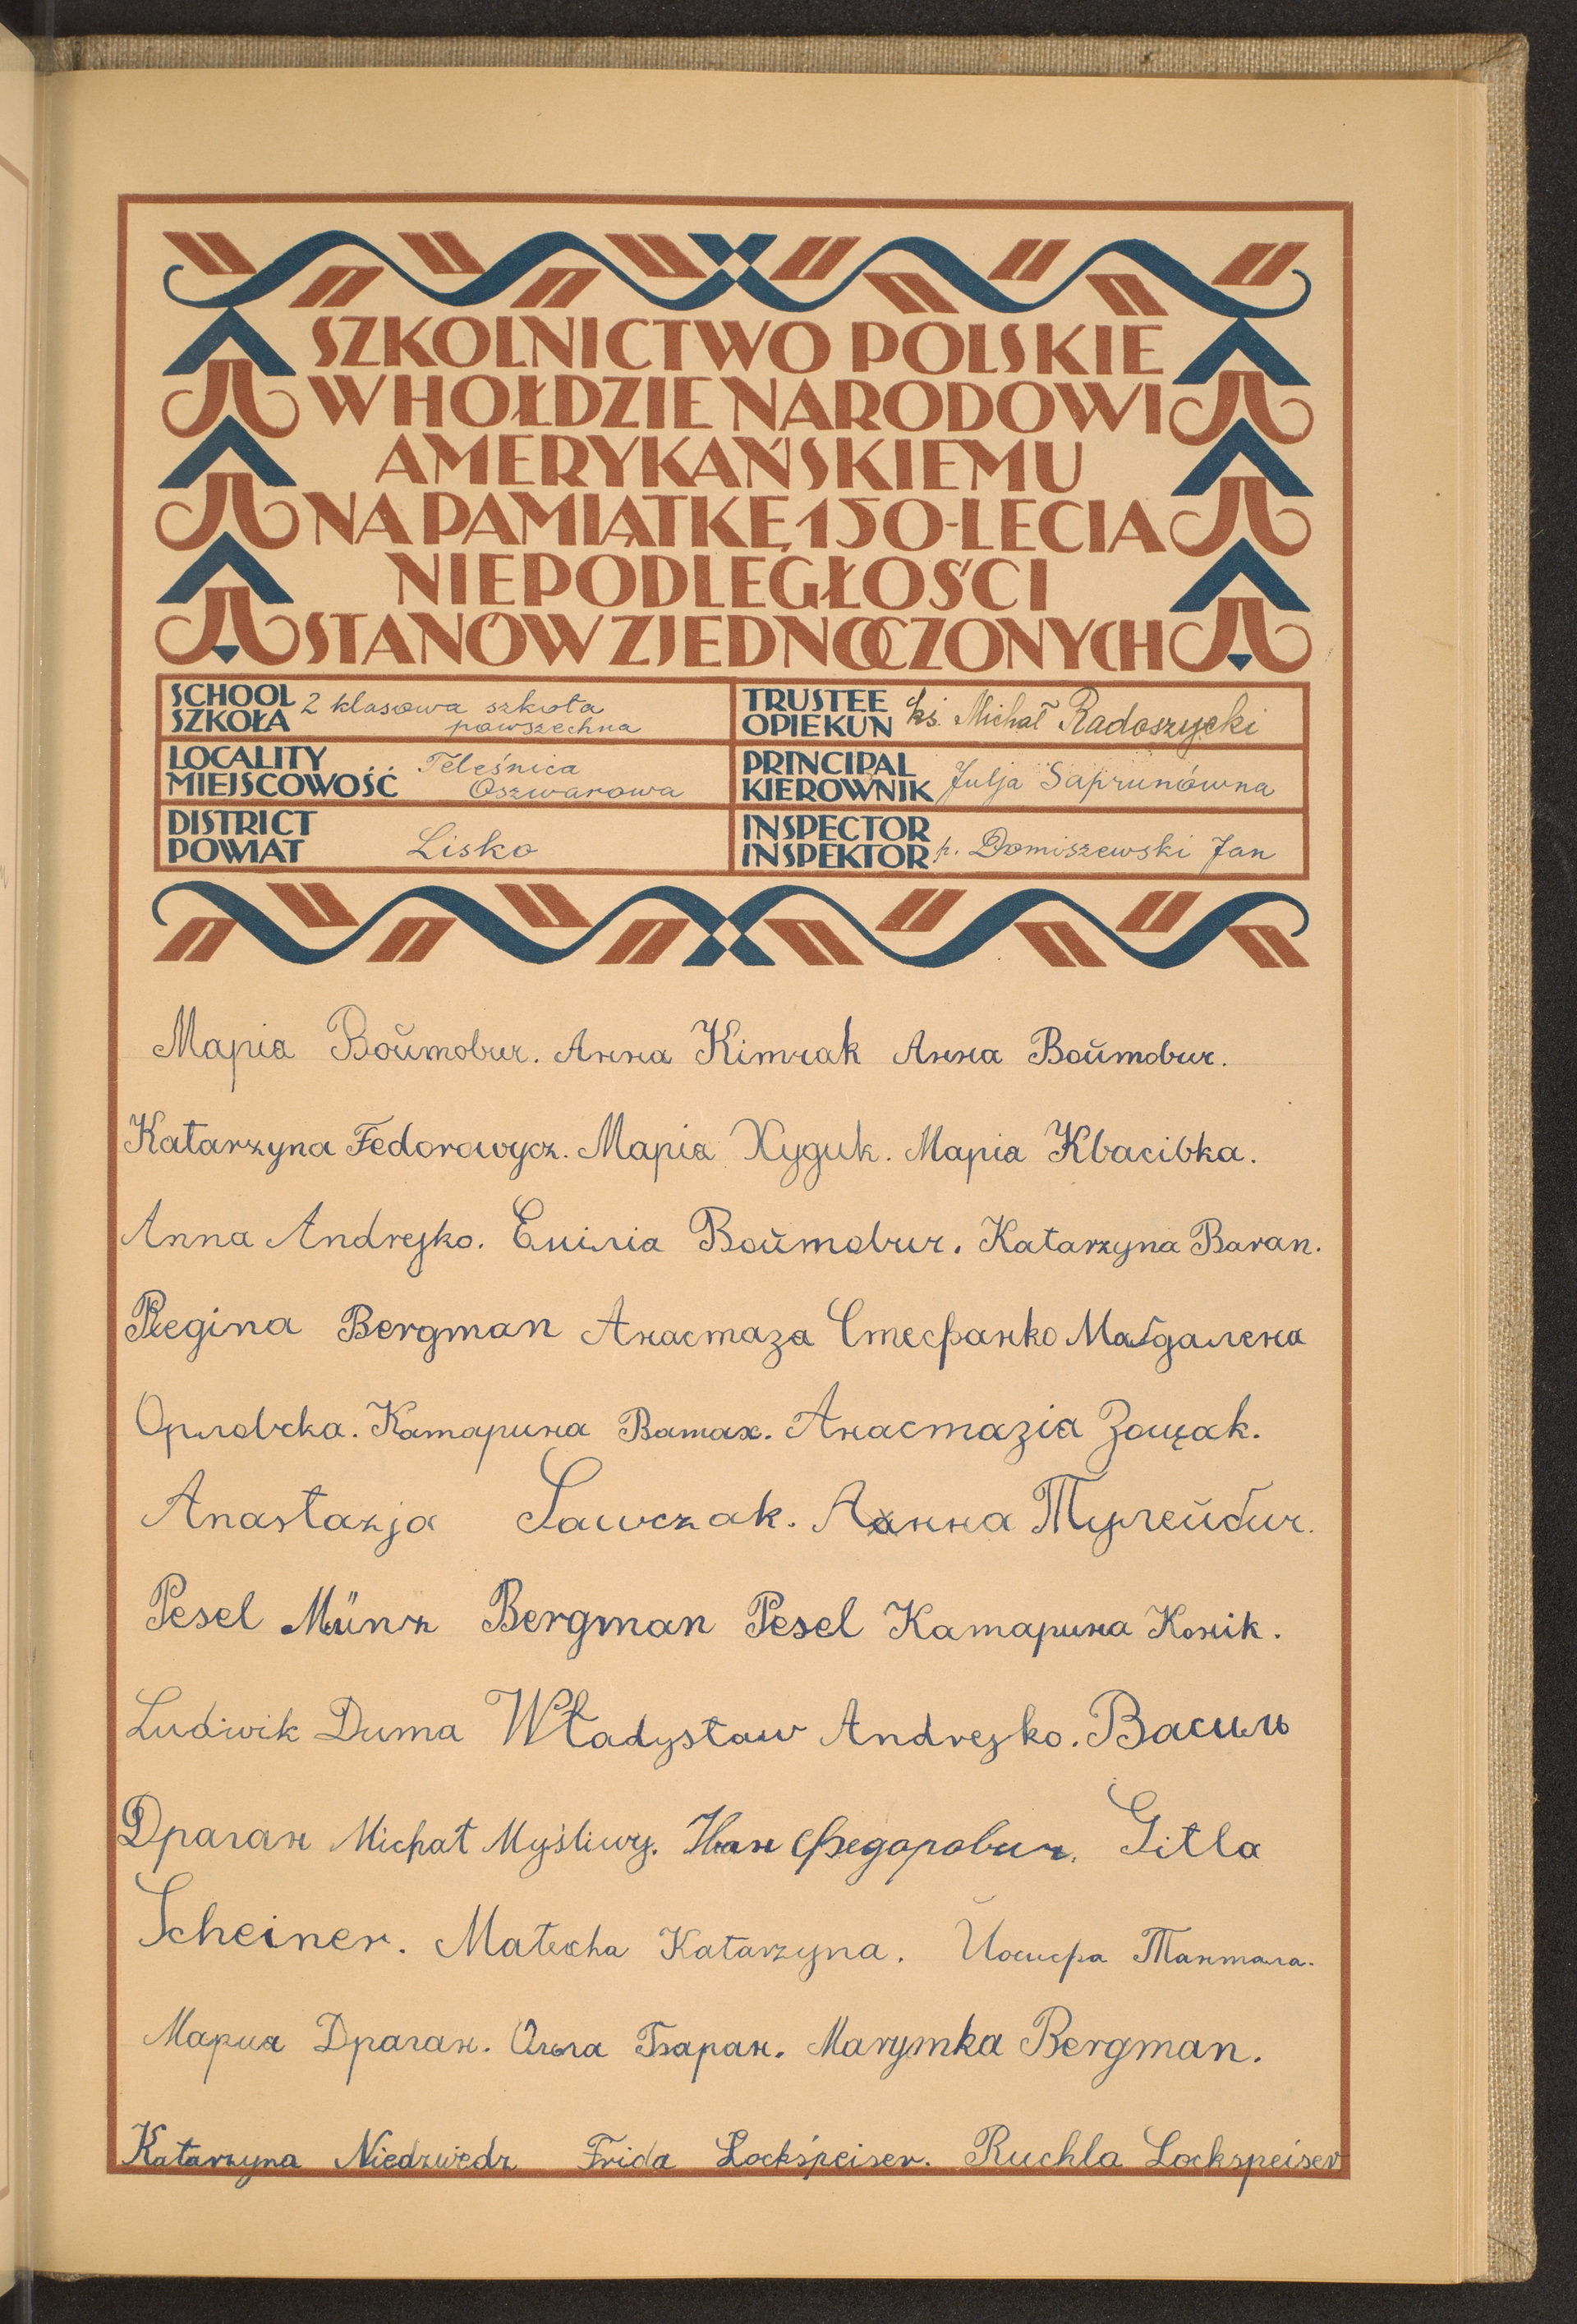 SZKOLNICTWO POLSKIE
W HOŁDZIE NARODOWI
AMERYKAŃSKIEMU
NA PAMIĄTKĘ 150-LECIA
NIEPODLEGŁOŚCI
STANÓW ZJEDNOCZONYCH
SCHOOL SZKOŁA 2 klasowa szkoła powszechna
TRUSTEE OPIEKUN ks. Michał Radoszycki
LOCALITY MIEJSCOWOŚĆ Teleśnica Oszwarowa
PRINCIPAL KIEROWNIK Julja Saprunówna
DISTRICT POWIAT Lisko
INSPECTOR INSPEKTOR p. Domiszewski Jan
Марія Войтович. Анна Кітчак Анна Войтович.
Katarzyna Fedorowycz. Марія Худик. Марія Квасівка.
Anna Andrejko. Емілія Войтович. Katarzyna Baran.
Regina Bergman Анастаза Стефанко Маґдалена
Орловска. Катарина Ватах. Анастазія Зощак.
Anastazja Sawczak. Анна Тулейбич.
Pesel Münz Bergman Pesel Катарина Конік.
Ludwik Duma Władysław Andrejko. Василь
Драган Michał Myśliwy. Іван Федорович. Gitla
Scheiner. Małecha Katarzyna. Йосифа Тантала.
Мариа Драган. Ольга Баран. Marymka Bergman.
Katarzyna Niedzwiedz Frida Lockspeiser. Ruchla Lockspeiser